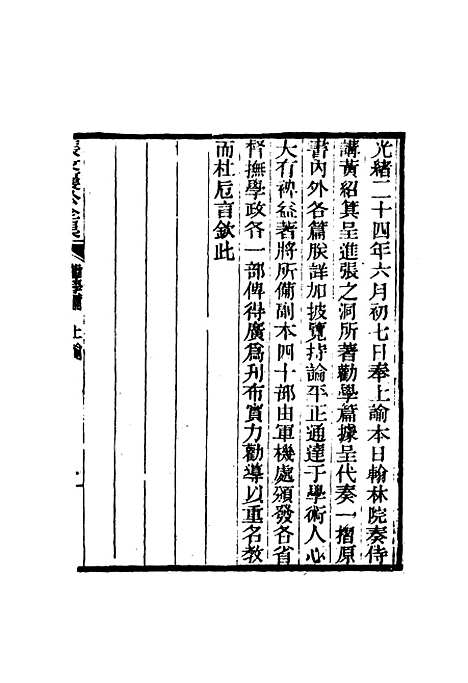 光緒二十四年六月初七日奉上諭本日翰林院奏侍
講黃紹箕呈進張之洞所著勸學篇據呈代奏一摺原
書內外各篇朕詳加披覽持論平正通達于學術人心
大有裨益著將所備副本四十部由軍機處頒發各省
督撫學政各一部俾得廣爲刋布實力勸導以重名教
而杜卮言欽此
勸學篇 上諭